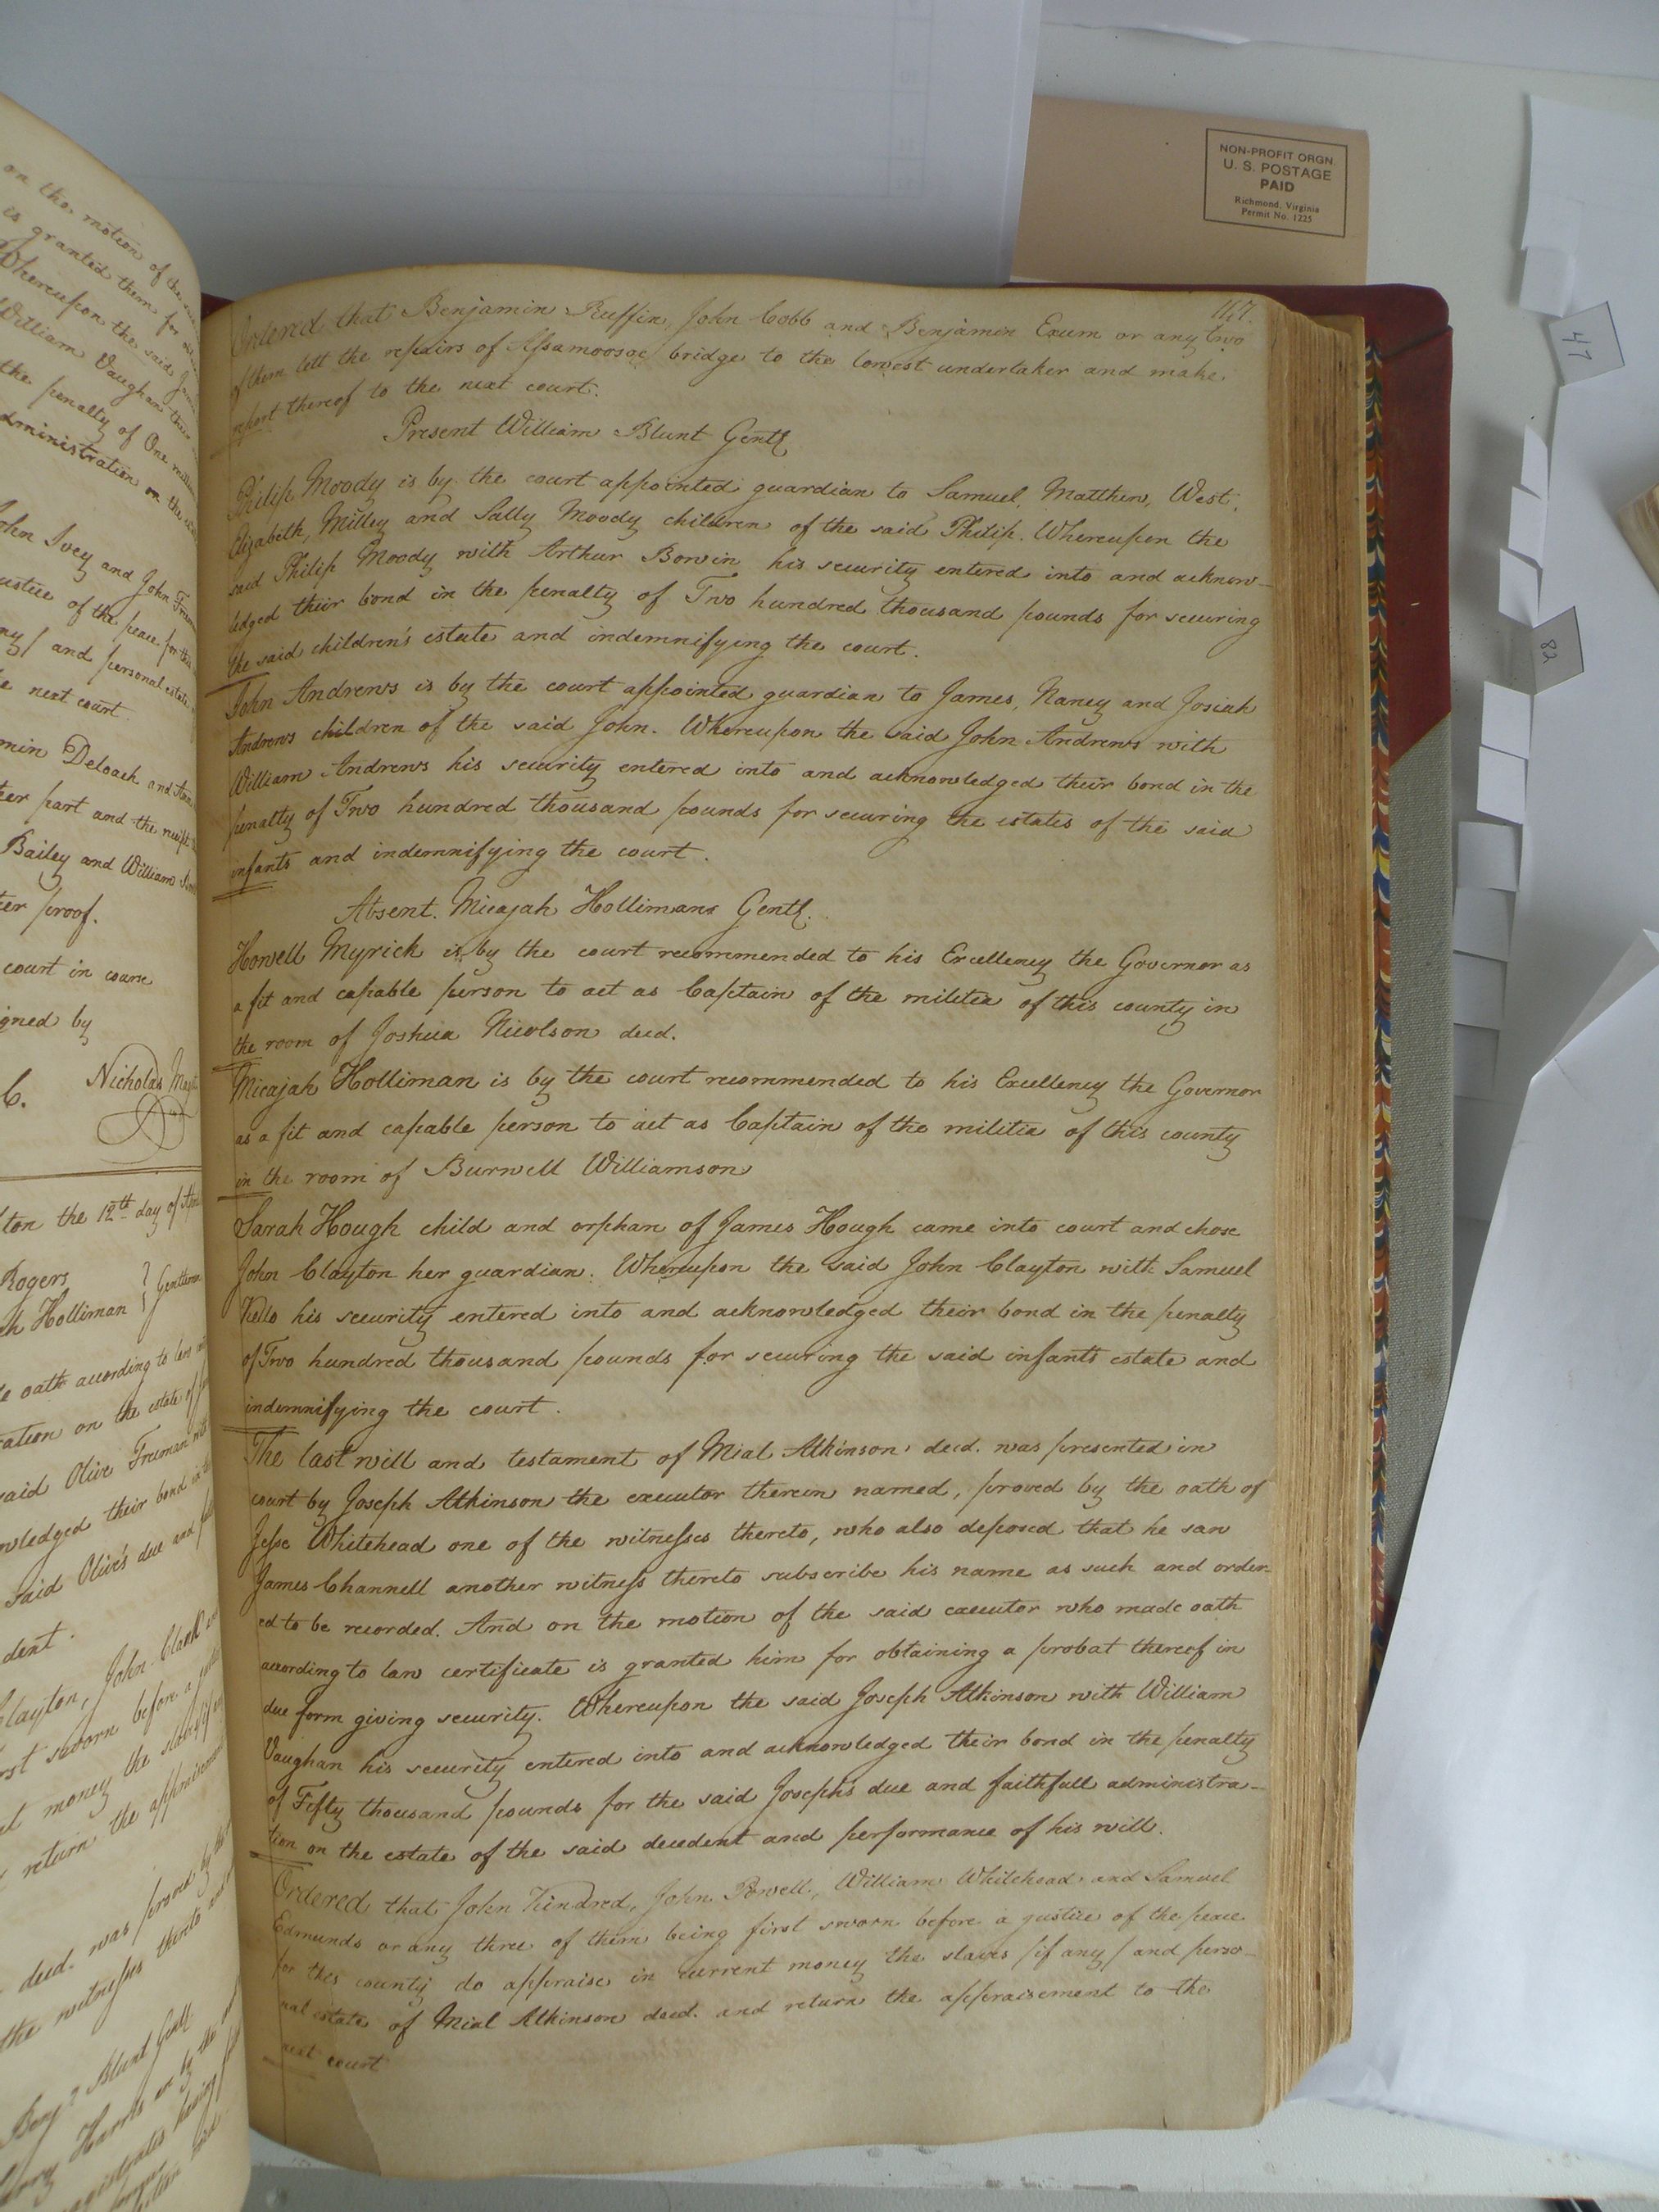 NON-PROFIT ORGN.
U. S. POSTAGE
PAID
Richmond, Virginia
Permit No. 1225
47
82
on the motion of the
is granted them for
Whereupon the said
William Vaughan their
the penalty of One million
dministration on the
John Ivey and John
ustice of the peace for this
ny/ and personal estate
e next court
min Deloach and
ter part and the
Bailey and William
er proof.
court in course
igned by
C. Nicholas
ton the 12th day of
Rogers
ah Holliman } Gentlemen
e oath according to law
ration on the estate of
said Olive Truman
nowledged their bond in
said Olive's due and
dent.
Clayton, John Clark
rst sworn before a
nt money the slaves if
return the appraisement
decd. was proved by the
the witnesses thereto
Benja Blunt Gentl
Harris
magistrates having
147.
Ordered that Benjamin Ruffin, John Cobb and Benjamin Exum or any two
of them lett the repairs of Assamoosoc bridge to the lowest undertaker and make
report thereof to the next court.
Present William Blunt Gentl
Philip Moody is by the court appointed guardian to Samuel, Matthew, West,
Elizabeth, Milley and Sally Moody children of the said Philip. Whereupon the
said Philip Moody with Arthur Bowin his security entered into and acknow-
ledged their bond in the penalty of Two hundred thousand pounds for securing
the said children's estate and indemnifying the court.
John Andrews is by the court appointed guardian to James, Nancy and Josiah
Andrews children of the said John. Whereupon the said John Andrews with
William Andrews his security entered into and acknowledged their bond in the
penalty of Two hundred thousand pounds for securing the estates of the said
infants and indemnifying the court.
Absent. Micajah Holliman Gentl.
Howell Myrick is by the court recommended to his Excellency the Governor as
a fit and capable person to act as Captain of the militia of this county in
the room of Joshua Nicolson decd.
Micajah Holliman is by the court recommended to his Excellency the Governor
as a fit and capable person to act as Captain of the militia of this county
in the room of Burwell Williamson
Sarah Hough child and orphan of James Hough came into court and chose
John Clayton her guardian. Whereupon the said John Clayton with Samuel
Kello his security entered into and acknowledged their bond in the penalty
of Two hundred thousand pounds for securing the said infants estate and
indemnifying the court.
The last will and testament of Mial Atkinson decd. was presented in
court by Joseph Atkinson the executor therein named, proved by the oath of
Jesse Whitehead one of the witnesses thereto, who also deposed that he saw
James Channell another witness thereto subscribe his name as such and order-
ed to be recorded. And on the motion of the said executor who made oath
according to law certificate is granted him for obtaining a probat thereof in
due form giving security. Whereupon the said Joseph Atkinson with William
Vaughan his security entered into and acknowledged their bond in the penalty
of Fifty thousand pounds for the said Joseph's due and faithfull administra-
tion on the estate of the said decedent and performance of his will.
Ordered that John Kindred, John Powell, William Whitehead and Samuel
Edmunds or any three of them being first sworn before a justice of the peace
for this county do appraise in current money the slaves /if any/ and perso-
nal estate of Mial Atkinson decd. and return the appraisement to the
next court